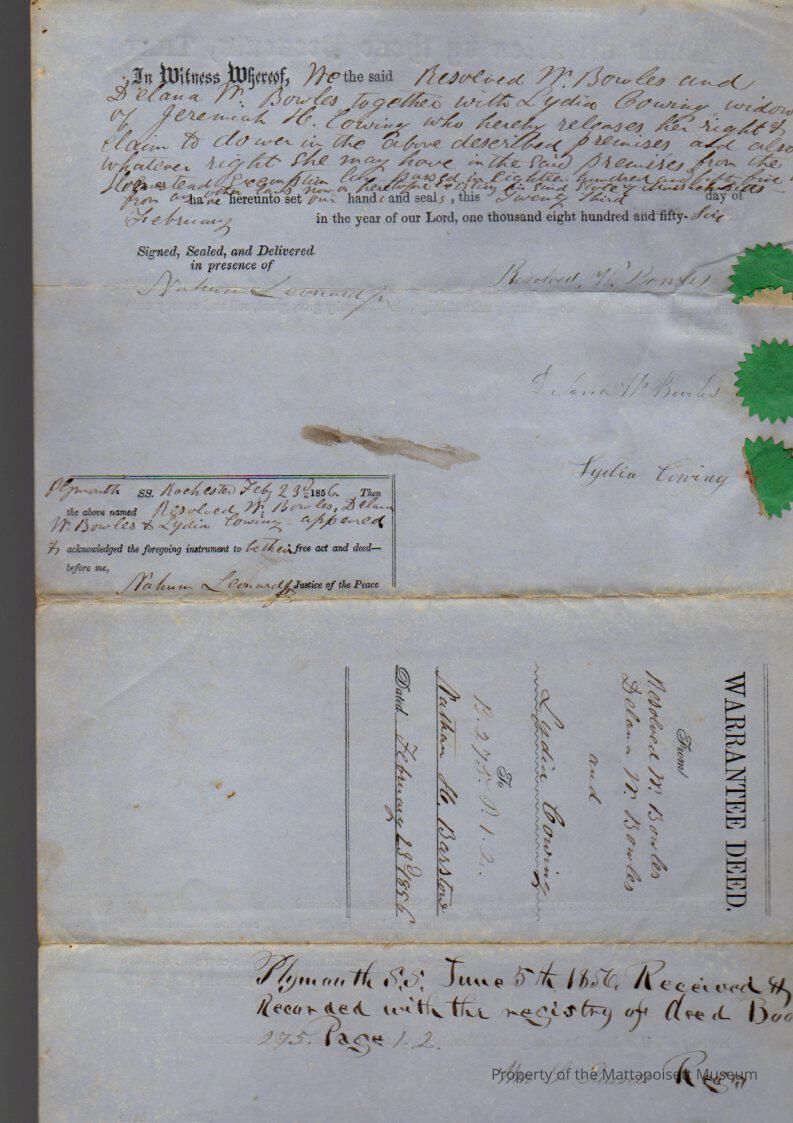 In Witness Whereof, We the said Resolved W. Bowles and
Delana W. Bowles together with Lydia Cowing widow
of Jeremiah H. Cowing who hereby releases her right &
claim to dower in the above described premises and also
whatever right she may have in the said premises from the
Homestead Exemption law passed in Eighteen hundred and fifty five &
from any other laws now or heretofore existing in said State of Massachusetts
have hereunto set our hands and seals, this Twenty third day of
February in the year of our Lord, one thousand eight hundred and fifty-six
Signed, Sealed, and Delivered
in presence of
Nahum Leonard Jr
Resolved W. Bowles
Delana W Bowles
Lydia Cowing
Plymouth SS. Rochester Feb 23d 1856. Then
the above named Resolved W. Bowles, Delana
W. Bowles & Lydia Cowing appeared
& acknowledged the foregoing instrument to be their free act and deed—
before me,
Nahum Leonard Jr Justice of the Peace
WARRANTEE DEED.
From
Resolved W. Bowles
Delana W. Bowles
and
Lydia Cowing
To
B. 275. P. 1. 2.
Nathan H. Barstow
Dated February 23d 1856
Plymouth S.S. June 5th 1856. Received &
Recorded with the registry of deed Boo
275. Page 1. 2.
Regr
Property of the Mattapoisett Museum